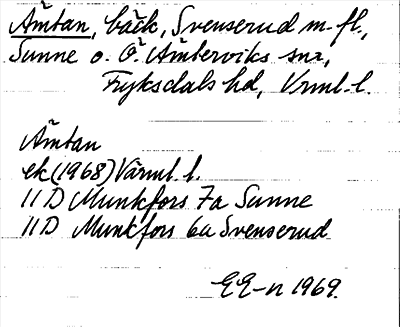 Åmtan, bäck, Svenserud m. fl.,
Sunne o. Ö. Ämterviks snr,
Fryksdals hd, Vrml. l.
Åmtan
ek (1968) Värml. l.
11 D Munkfors 7a Sunne
11 D Munkfors 6a Svenserud
EE-n 1969.